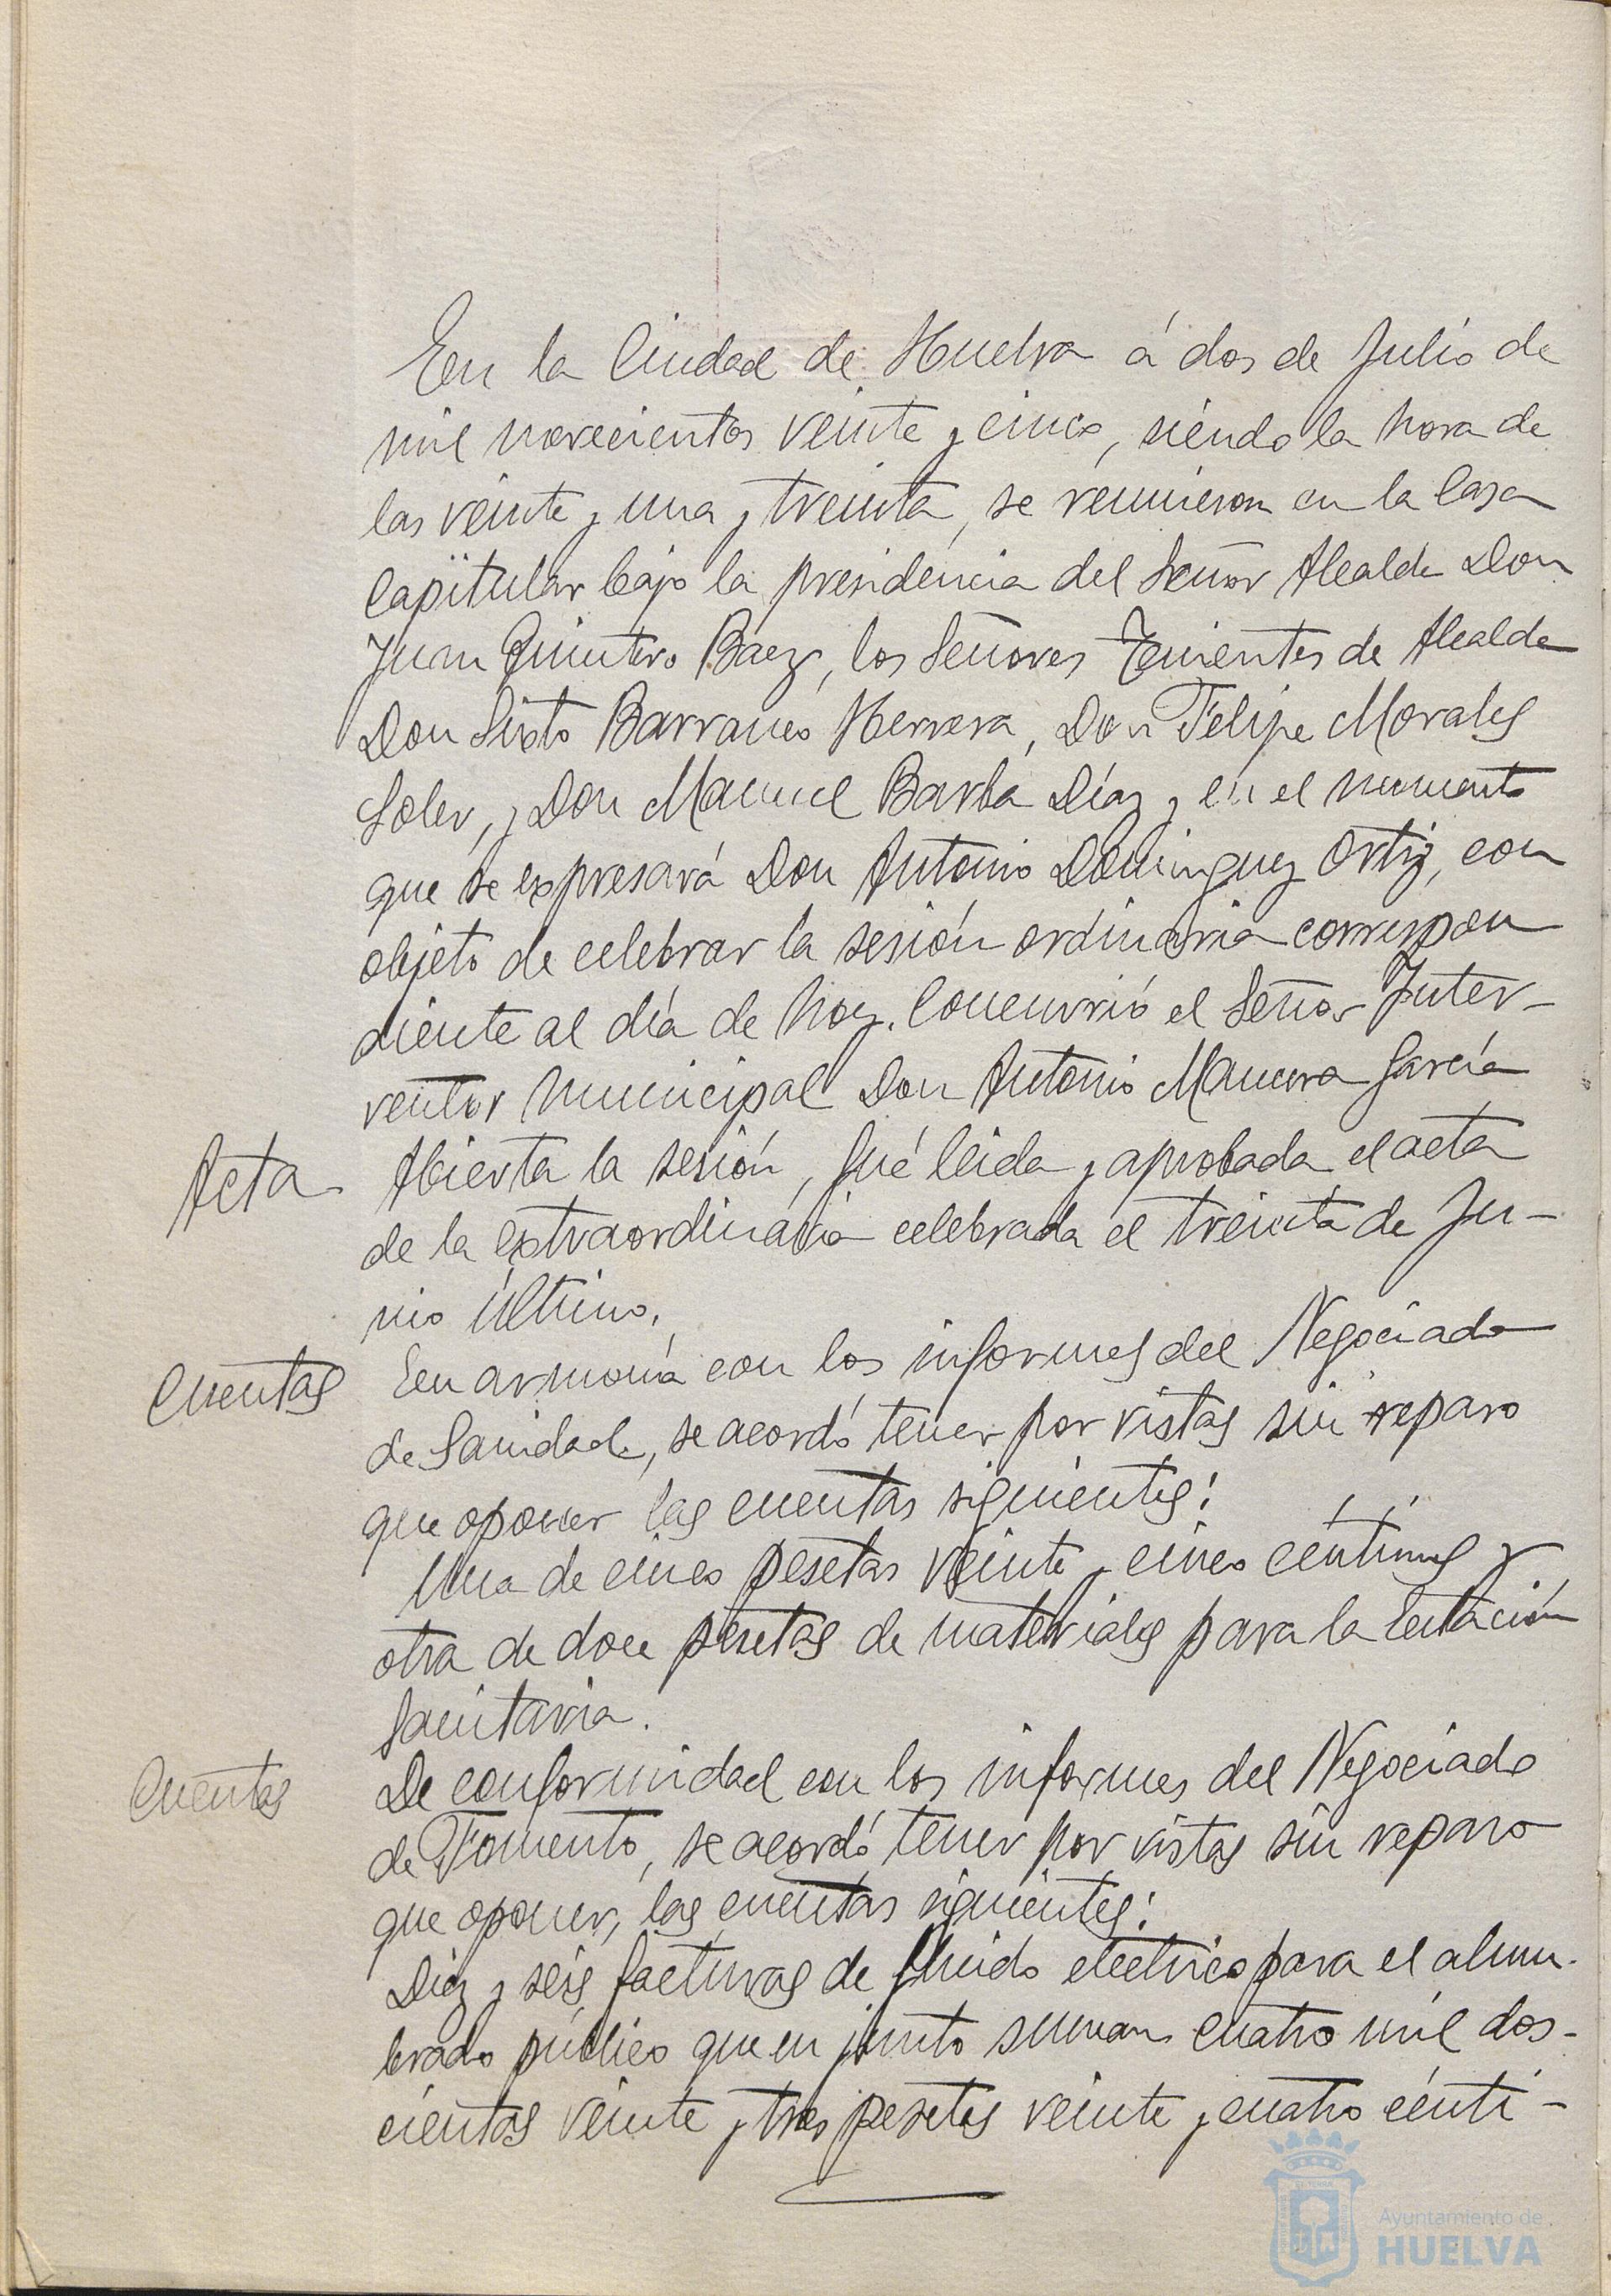 En la Ciudad de Huelva á dos de Julio de
mil novecientos veinte y cinco, siendo la hora de
las veinte y una y treinta, se reunieron en la Casa
Capitular bajo la presidencia del Señor Alcalde Don
Juan Quintero Báez, los Señores Tenientes de Alcalde
Don Sixto Barranco Herrera, Don Felipe Morales
Soler, y Don Manuel Barba Díaz y en el momento
que se expresará Don Antonio Dominguez Ortiz, con
objeto de celebrar la sesión ordinaria correspon
diente al día de hoy. Concurrió el Señor Inter-
ventor municipal Don Antonio Mancera García
Acta Abierta la sesión, fué leida y aprobada el acta
de la extraordinaria celebrada el treinta de Ju-
nio último.
Cuentas En armonía con los informes del Negociado
de Sanidad, se acordó tener por vistas sin reparo
que oponer las cuentas siguientes:
Una de cinco pesetas veinte y cinco céntimos y
otra de doce pesetas de materiales para la Estación
Sanitaria.
Cuentas De conformidad con los informes del Negociado
de Fomento, se acordó tener por vistas sin reparo
que oponer, las cuentas siguientes:
Diez y seis facturas de fluido electrico para el alum-
brado público que en junto suman cuatro mil dos-
cientas veinte y tres pesetas veinte y cuatro cénti-
Ayuntamiento de
HUELVA